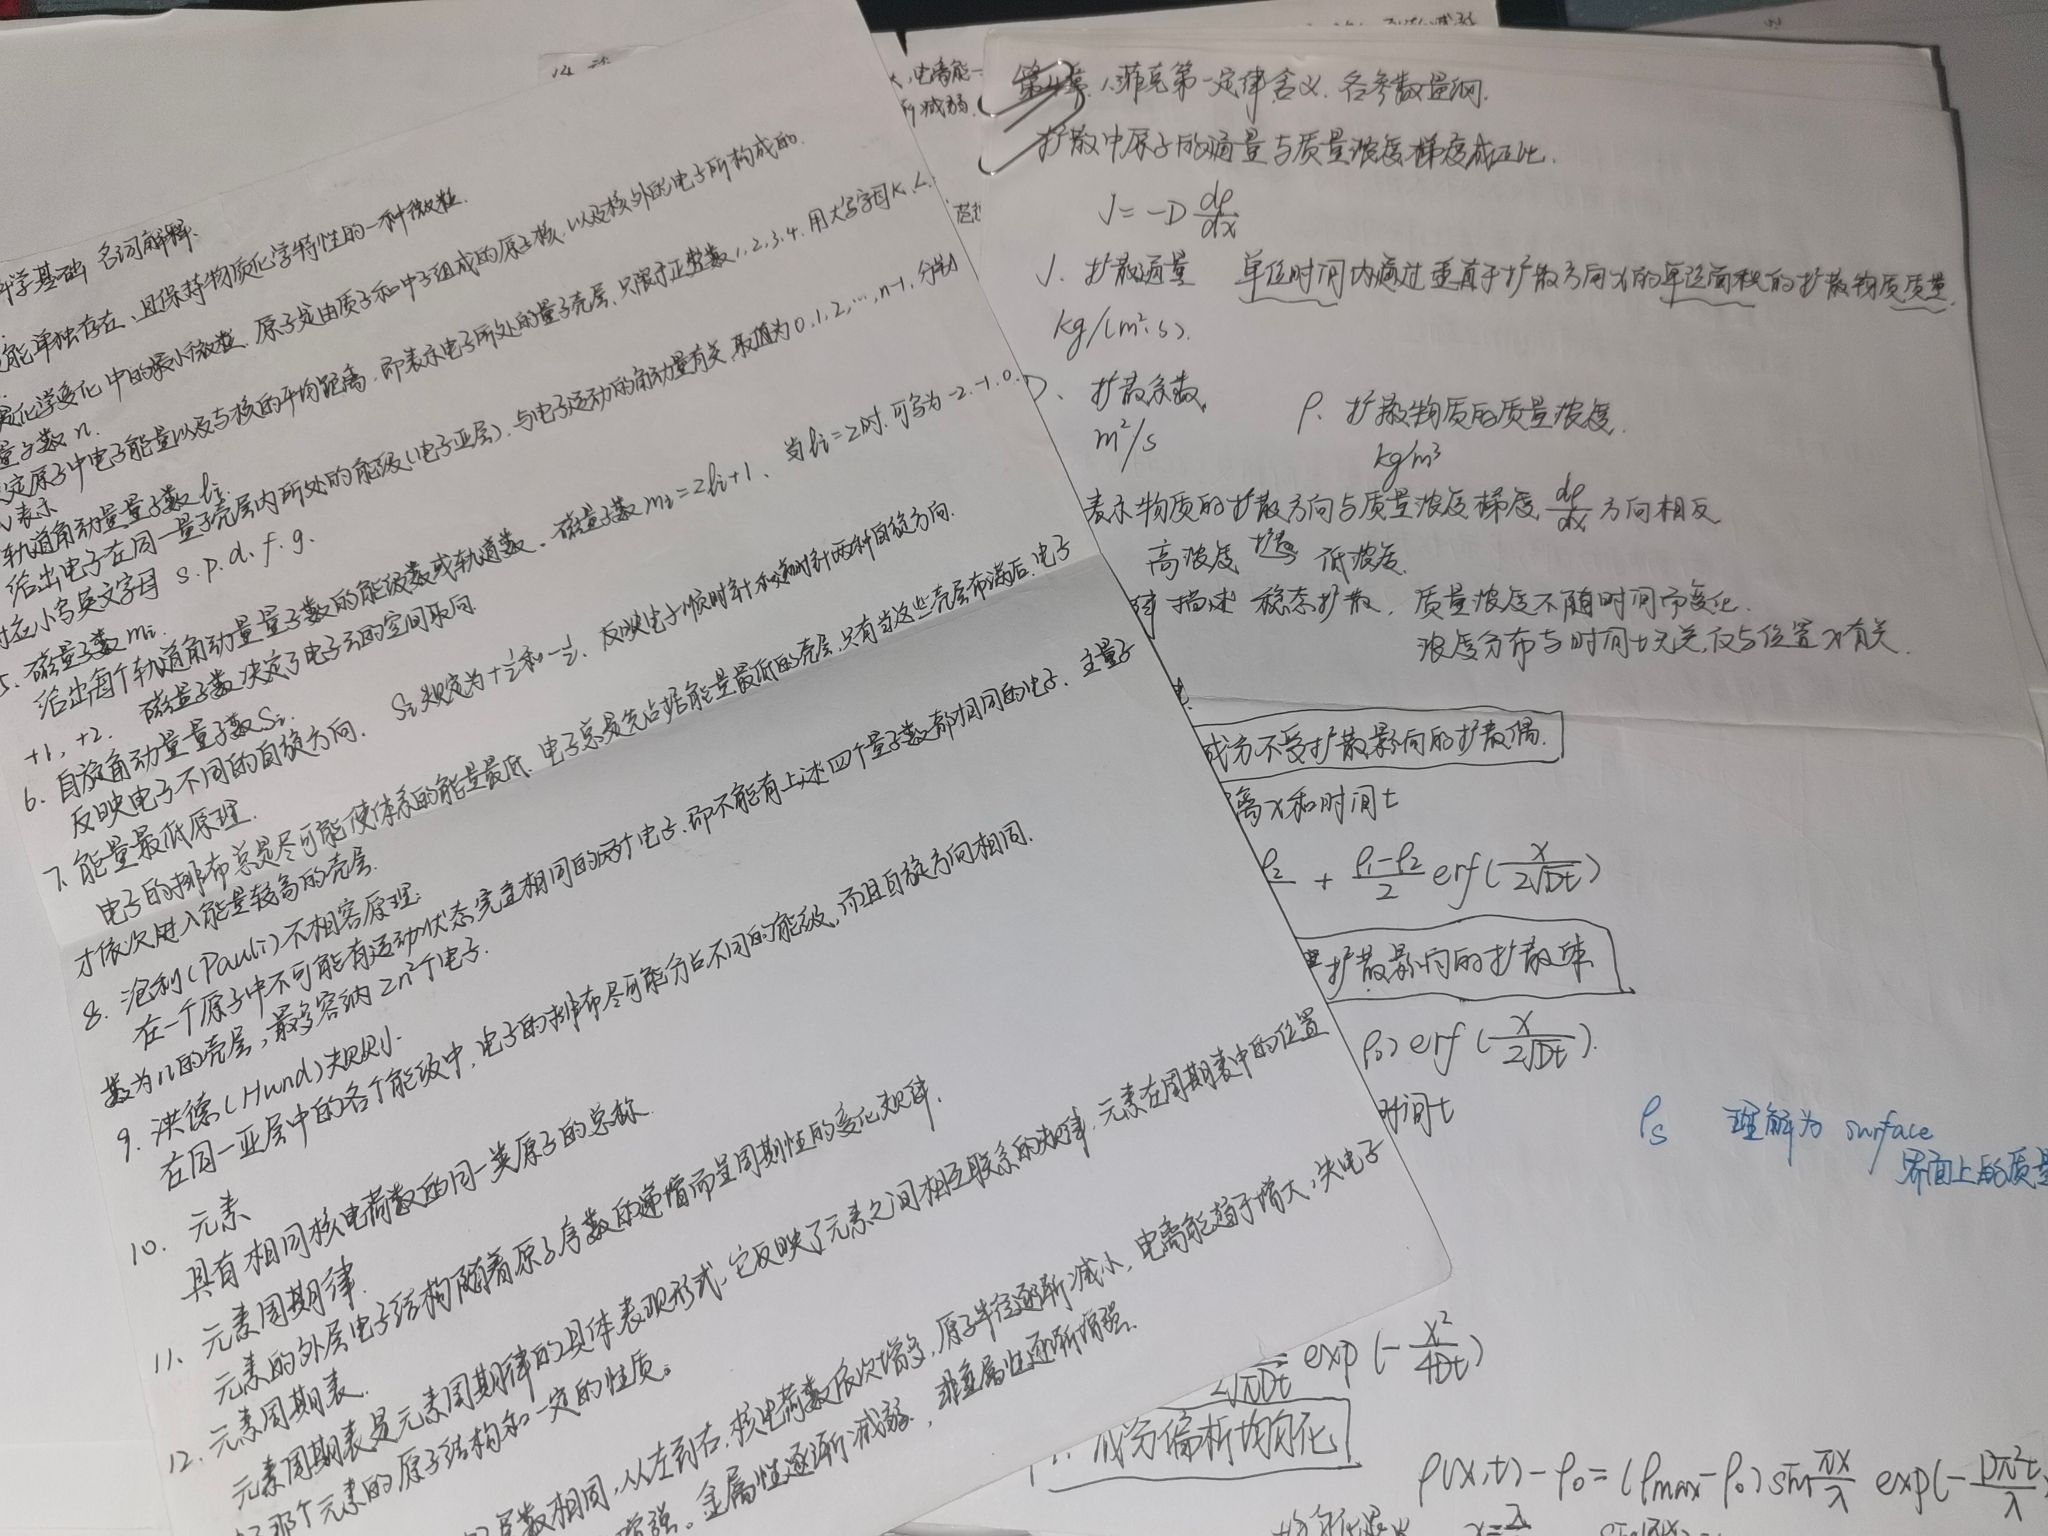 科学基础 名词解释.
能单独存在、且保持物质化学特性的一种微粒.
化学变化中的最小微粒. 原子是由质子和中子组成的原子核, 以及核外的电子所构成的.
量子数 n.
定原子中电子能量以及与核的平均距离, 即表示电子所处的量子壳层, 只限于正整数1, 2, 3, 4. 用大写字母K, L,
表示
轨道角动量量子数 li.
给出电子在同一量子壳层内所处的能级(电子亚层), 与电子运动的角动量有关, 取值为0, 1, 2, …, n-1, 分别
对应小写英文字母 s. p. d. f. g.
5. 磁量子数 mi.
给出每个轨道角动量量子数的能级数或轨道数. 磁量子数 mi = 2li+1, 当li = 2时, 可写为 -2, -1, 0,
+1, +2. 磁量子数决定了电子云的空间取向
6. 自旋角动量量子数 Si.
反映电子不同的自旋方向. Si规定为 +½ 和 -½, 反映电子顺时针和逆时针两种自旋方向.
7. 能量最低原理.
电子的排布总是尽可能使体系的能量最低. 电子总是先占据能量最低的壳层, 只有当这些壳层布满后, 电子
才依次进入能量较高的壳层.
8. 泡利(Pauli)不相容原理.
在一个原子中不可能有运动状态完全相同的两个电子, 即不能有上述四个量子数都相同的电子. 主量子
数为n的壳层, 最多容纳 2n²个电子.
9. 洪德(Hund)规则.
在同一亚层中的各个能级中, 电子的排布尽可能分占不同的能级, 而且自旋方向相同.
10. 元素
具有相同核电荷数的同一类原子的总称.
11. 元素周期律.
元素的外层电子结构随着原子序数的递增而呈周期性的变化规律.
12. 元素周期表.
元素周期表是元素周期律的具体表现形式, 它反映了元素之间相互联系的规律, 元素在周期表中的位置
那个元素的原子结构和一定的性质。
层数相同, 从左到右, 核电荷数依次增多, 原子半径逐渐减小, 电离能趋于增大, 失电子
增强。金属性逐渐减弱, 非金属性逐渐增强.
电离能
减弱.
第4章. 1. 菲克第一定律含义. 各参数量纲.
扩散中原子的通量与质量浓度梯度成正比.
J = -D dρ/dx
J. 扩散通量 单位时间内通过垂直于扩散方向x的单位面积的扩散物质质量.
kg/(m²·s).
D. 扩散系数 ρ. 扩散物质的质量浓度.
m²/s kg/m³
表示物质的扩散方向与质量浓度梯度 dρ/dx 方向相反
高浓度 扩散 低浓度.
描述 稳态扩散. 质量浓度不随时间而变化.
浓度分布与时间t无关, 仅与位置x有关.
成分不受扩散影响的扩散偶.
离x和时间t
ρ2 + (ρ1-ρ2)/2 erf(x/2√Dt)
扩散影响的扩散体
ρ0) erf(x/2√Dt).
时间t
ρs 理解为 surface
界面上的质量
2√πDt exp(-x²/4Dt)
成分偏析均匀化
ρ(x,t) - ρ0 = (ρmax-ρ0) sin πx/λ exp(-Dπ²t/λ